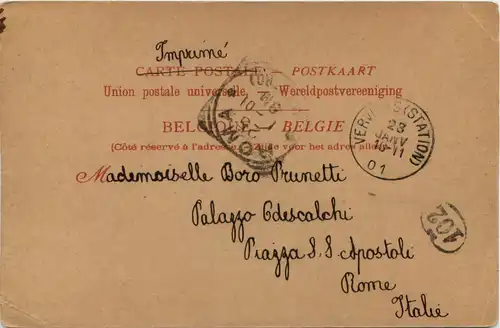 Imprimé
CARTE POSTALE — POSTKAART
Union postale universelle. — Wereldpostvereeniging
BELGIE
(Côté réservé à l'adresse voor het adres
Mademoiselle Boro Prunetti
Palazzo Odescalchi
Piazza S.S. Apostoli
Rome
Italie
(STATION)
23
JANV
10-11
01
ROMA
102